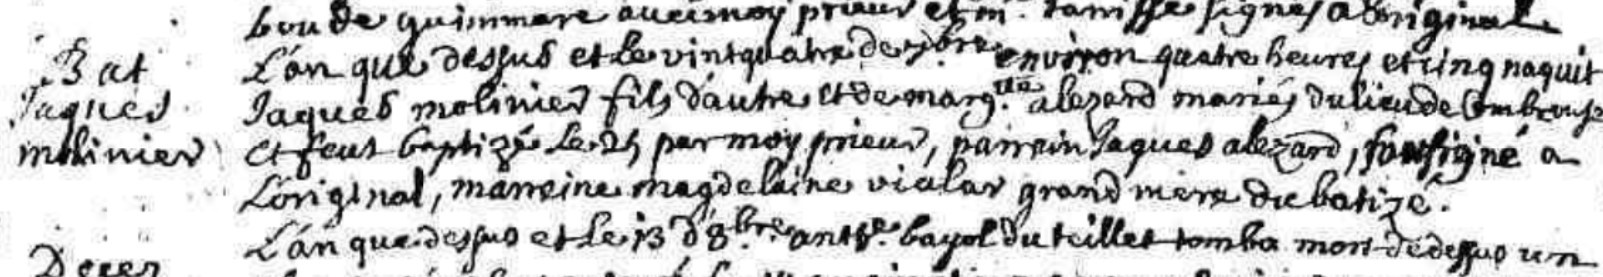 bou de quinmare avec moy prieur et mr. tarisse signés a loriginal
Bat L'an que dessus et le vintquatre de 7bre environ quatre heures et cinq naquit
Jaques Jaques molinier fils d'autre et de margte alezard mariés du lieu de Combrouse
molinier et feut baptizé le 25 par moy prieur, parrein Jaques alezard, soussigné a
L'original, marreine magdelaine vialar grand mere du batizé.
L'an que dessus et le 13 d'8bre anthe. bayol du teillet tomba mort de dessus un
Deces